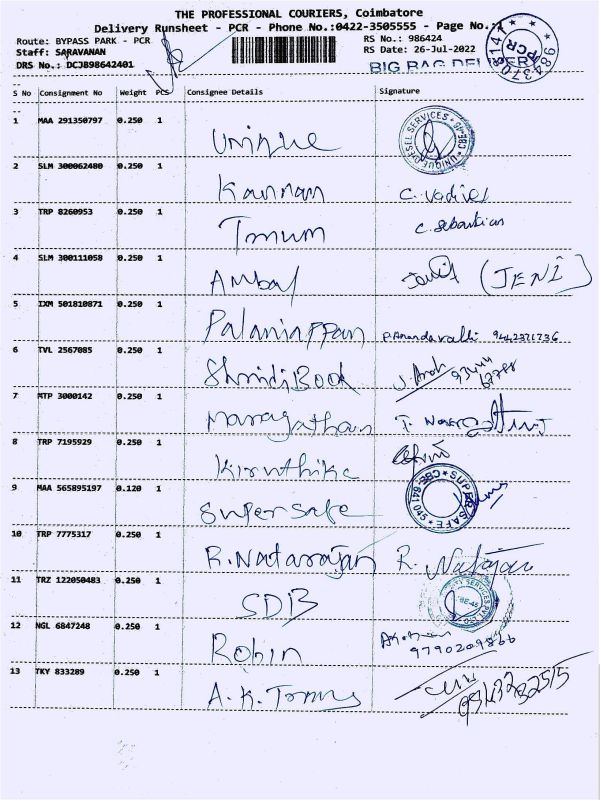 THE PROFESSIONAL COURIERS, Coimbatore
Delivery Runsheet - PCR - Phone No.:0422-3505555 - Page No.:1
Route: BYPASS PARK - PCR RS No.: 986424
Staff: SARAVANAN RS Date: 26-Jul-2022
DRS No.: DCJB98642401 BIG BAG DELIVERY
PCR
S No Consignment No Weight PCS Consignee Details Signature
1 MAA 291350797 0.250 1 Unique UNIQUE DIESEL SERVICES
2 SLM 300062480 0.250 1 Kannan C. Vadivel
3 TRP 8260953 0.250 1 Tmum C. Sebastian
4 SLM 300111058 0.250 1 Ambal (JENI)
5 IXM 501810871 0.250 1 Palaniappan P. Anandavalli 9442371736
6 TVL 2567085 0.250 1 Shridi Book
7 MTP 3000142 0.250 1 Maragathan
8 TRP 7195929 0.250 1 Kiruthika
9 MAA 565895197 0.120 1 Supersafe SUPER SAFE CBE-641 045
10 TRP 7775317 0.250 1 R. Natarajan R. Natajan
11 TRZ 122050483 0.250 1 SDB
12 NGL 6847248 0.250 1 Robin 9790209866
13 TKY 833289 0.250 1 A. K. Toms